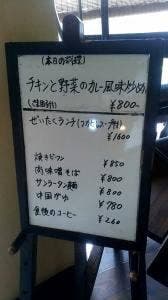 (本日の料理)
チキンと野菜のカレー風味炒め
¥800-
ぜいたくランチ
¥1600
焼きビーフン ¥850
肉味噌そば ¥800
サンラータン麺 ¥800
中国がゆ ¥780
食後のコーヒー ¥260